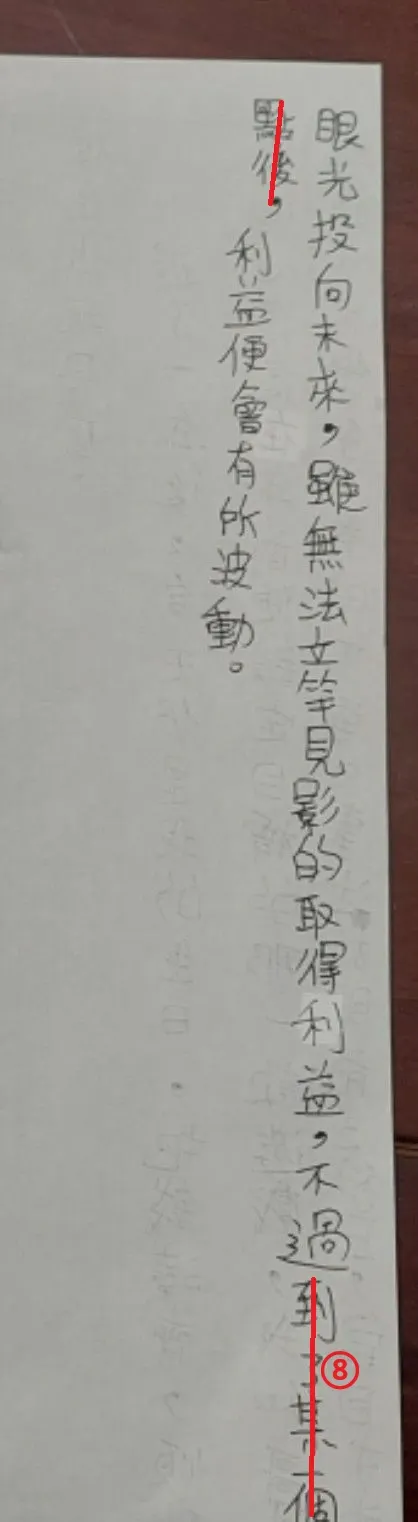 眼光投向未來，雖無法立竿見影的取得利益，不過到了某一個
點後，利益便會有所波動。
⑧